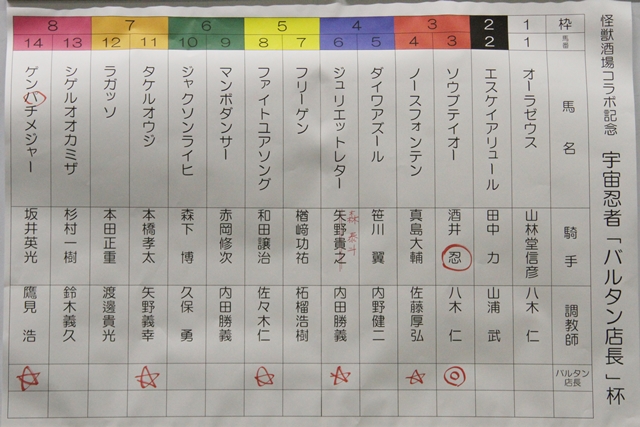 怪獣酒場コラボ記念 宇宙忍者「バルタン店長」杯
枠 馬番 馬名 騎手 調教師 バルタン店長
1 1 オーラゼウス 山林堂信彦 八木 仁
2 2 エスケイアリュール 田中 力 山浦 武
3 3 ソウブテイオー 酒井 忍 八木 仁 ◎
3 4 ノースフォンテン 真島大輔 佐藤厚弘 ☆
4 5 ダイワアズール 笹川 翼 内野健二
4 6 ジュリエットレター 矢野貴之 森泰斗 内田勝義 ☆
5 7 フリーゲン 楢﨑功祐 柘榴浩樹
5 8 ファイトユアソング 和田譲治 佐々木仁 ☆
6 9 マンボダンサー 赤岡修次 内田勝義
6 10 ジャクソンライヒ 森下 博 久保 勇
7 11 タケルオウジ 本橋孝太 矢野義幸 ☆
7 12 ラガッソ 本田正重 渡邊貴光
8 13 シゲルオオカミザ 杉村一樹 鈴木義久
8 14 ゲンハチメジャー 坂井英光 鷹見 浩 ☆